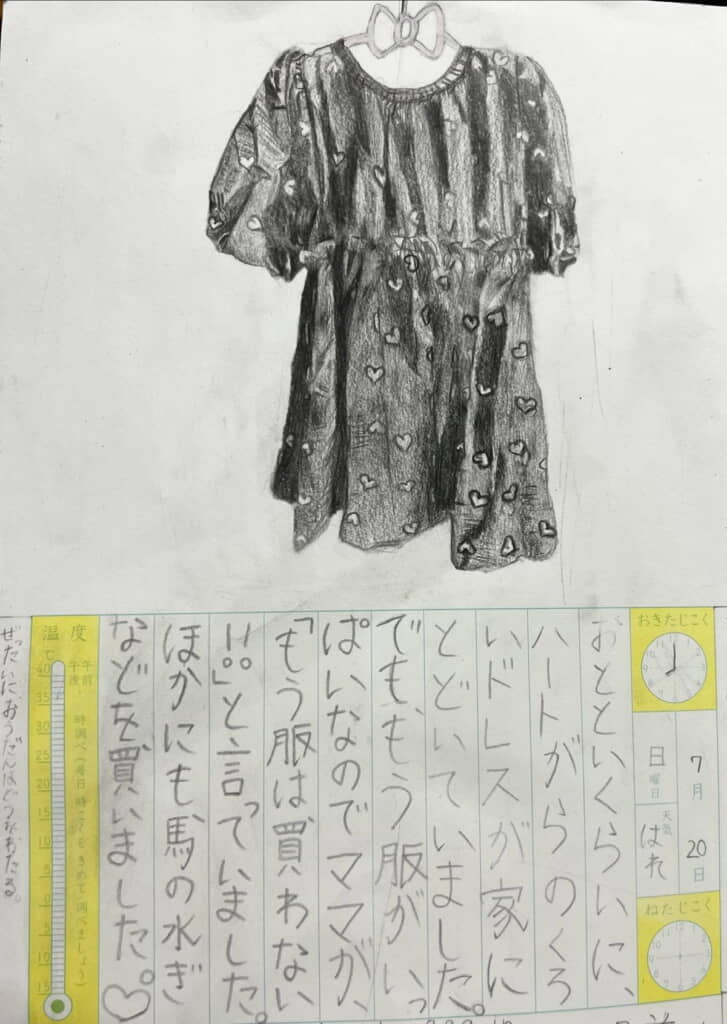 おきたじこく
7月
20日
日曜日
天気
はれ
ねたじこく
おとといくらいに、
ハートがらのくろ
いドレスが家に
とどいていました。
でも、もう服がいっ
ぱいなのでママが、
「もう服は、買わない
!!。」と言っていました。
ほかにも、馬の水ぎ
などを、買いました。♡
温度
℃
午前
午後
時調べ(毎日時こくをきめて調べましょう)
40
35
30
25
20
15
10
5
0
5
10
15
ぜったいに、おうだんほどうをわたる。